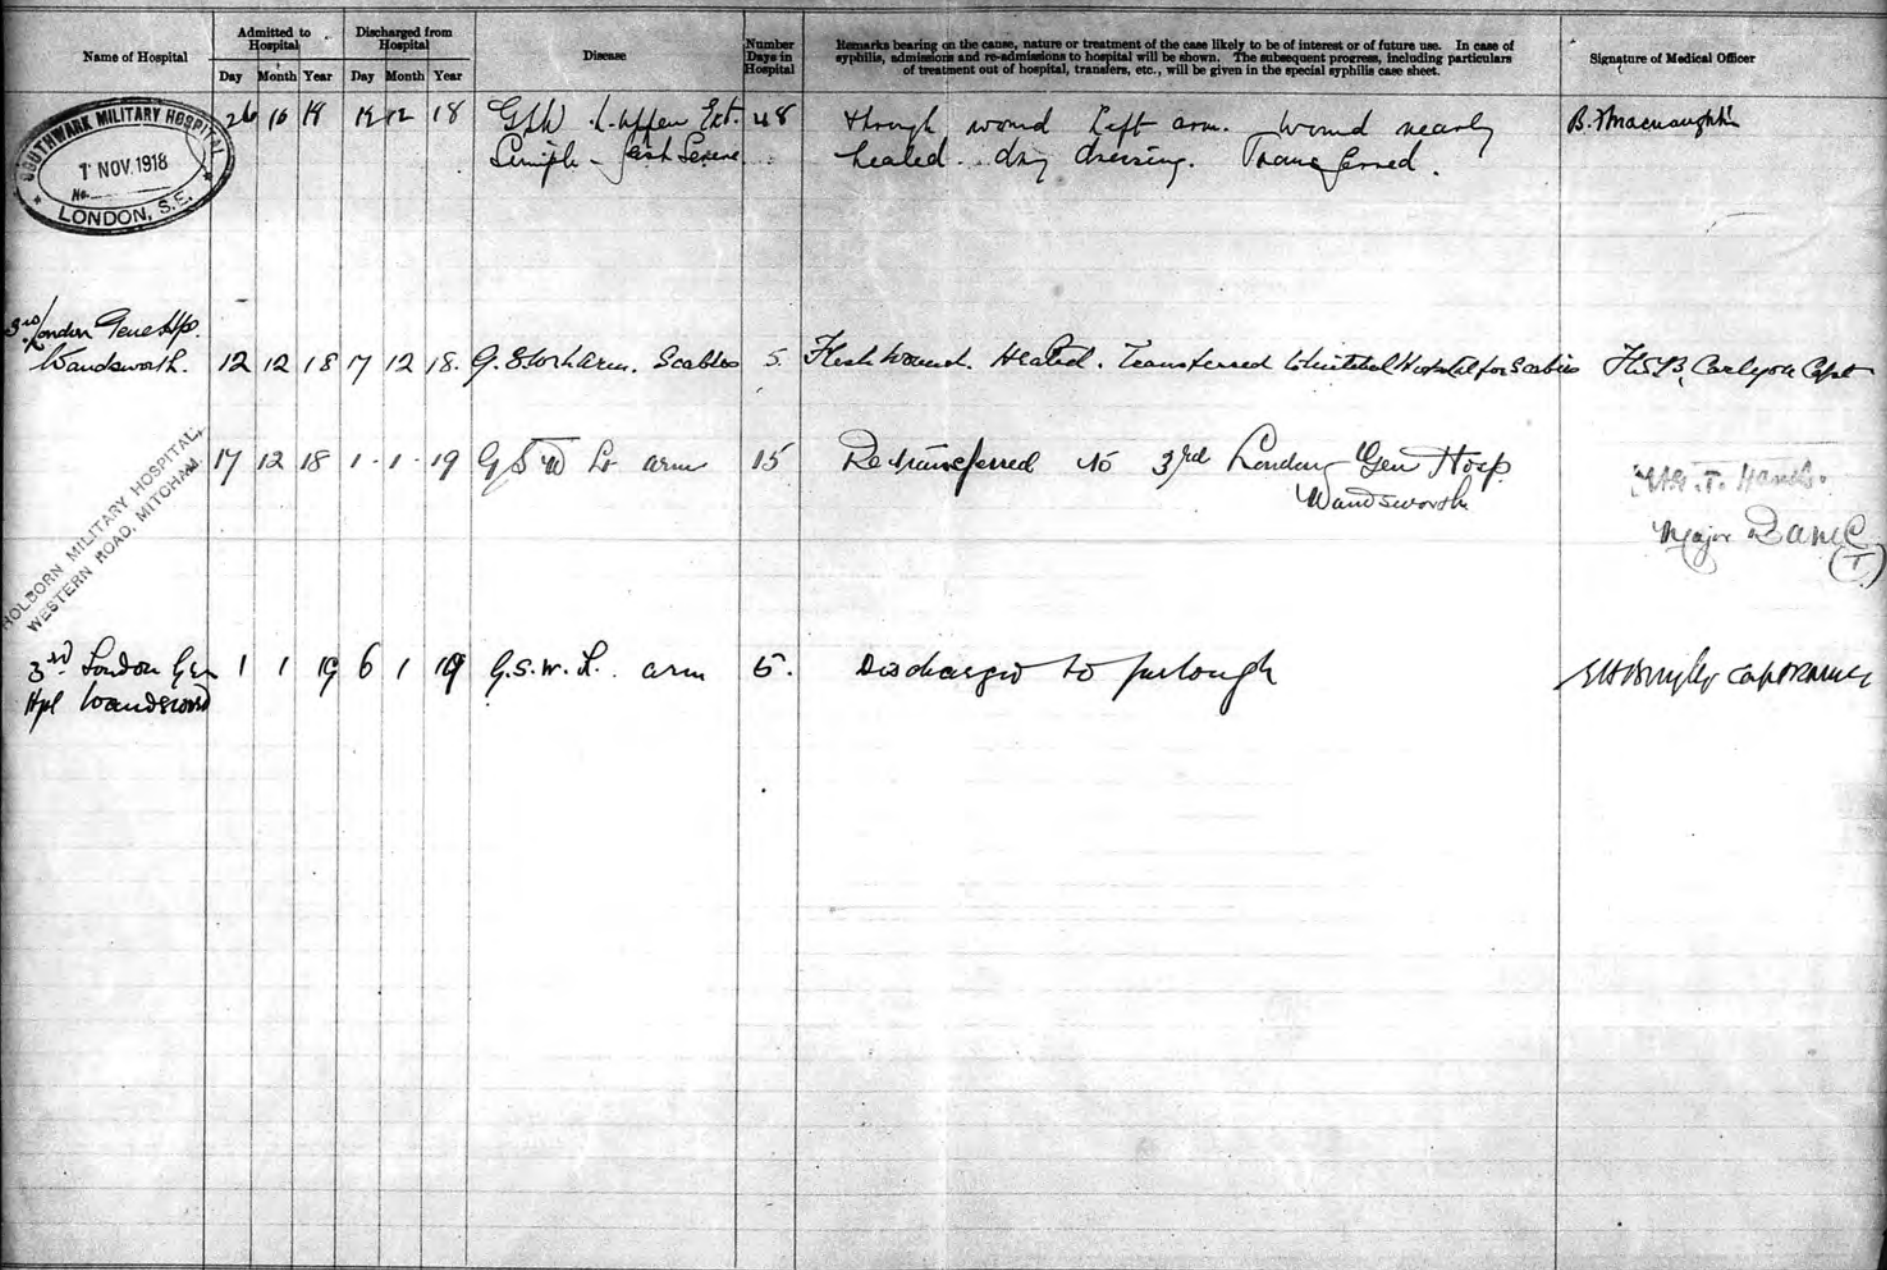 Name of Hospital
Admitted to Hospital
Day Month Year
Discharged from Hospital
Day Month Year
Disease
Number Days in Hospital
Remarks bearing on the cause, nature or treatment of the case likely to be of interest or of future use. In case of
syphilis, admissions and re-admissions to hospital will be shown. The subsequent progress, including particulars
of treatment out of hospital, transfers, etc., will be given in the special syphilis case sheet.
Signature of Medical Officer
SOUTHWARK MILITARY HOSPITAL
7 NOV. 1918
No.
LONDON, S.E.
26 10 18 12 12 18 GSW L. upper Ext. 48 through wound left arm. Wound nearly
Simple - healed. dry dressing. Transferred.
3rd London Gen Hp.
Wandsworth. 12 12 18 17 12 18. G.S.W arm. Scabies 5. Flesh Wound. Healed. Transferred to Mitcham Hospital for Scabies Carlyon Capt
HOLBORN MILITARY HOSPITAL,
WESTERN ROAD, MITCHAM.
17 12 18 1.1.19 G S W Lt arm 15 Retransferred to 3rd London Gen Hosp.
Wandsworth
Major RAMC
(T)
3rd London Gen 1 1 19 6 1 19 G.S.W. L. arm 5. Discharged to furlough Capt RAMC
Hpl Wandsworth